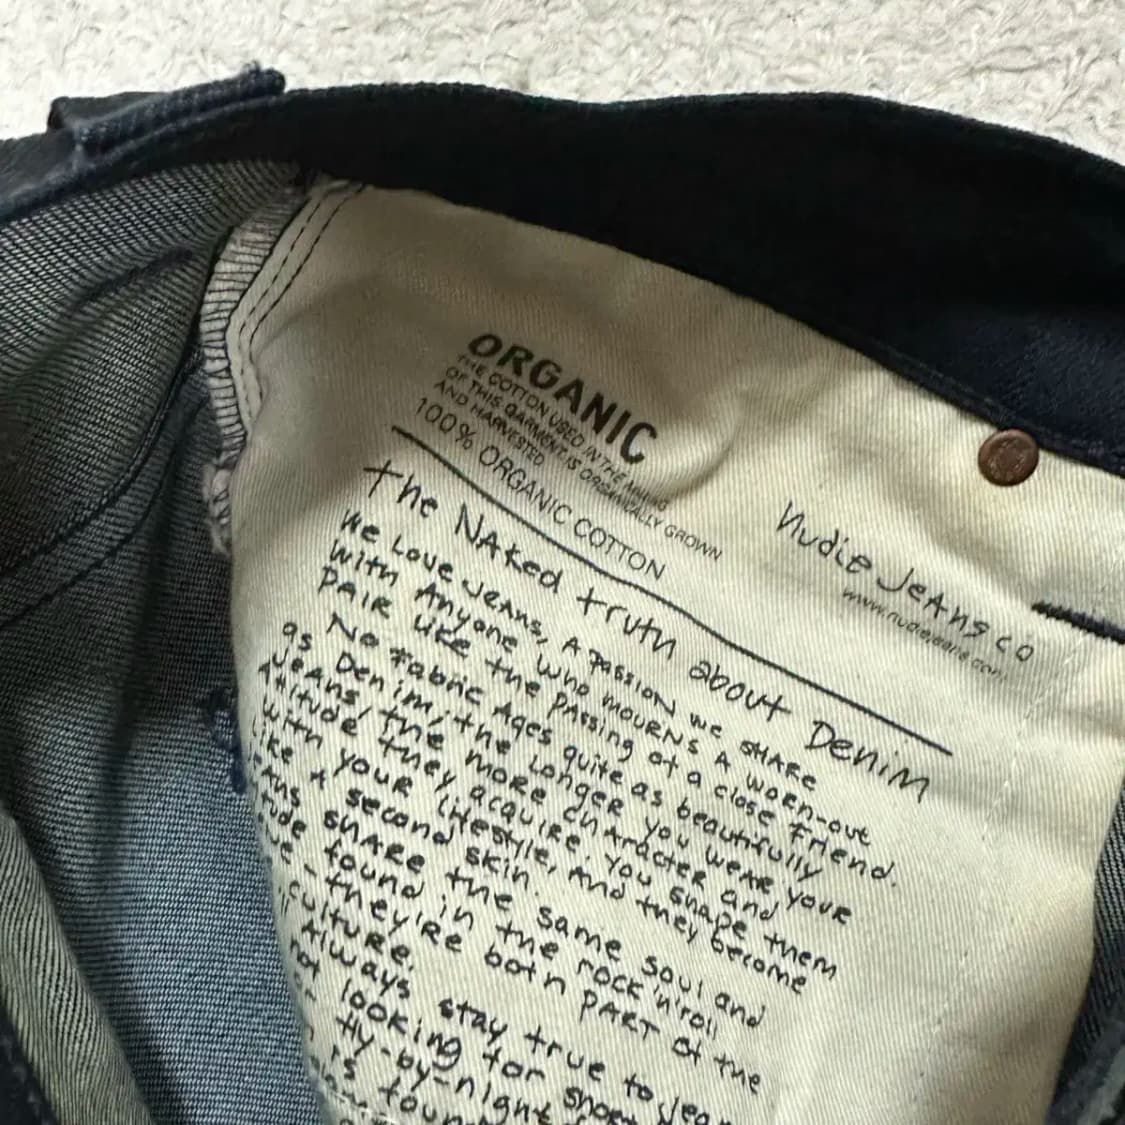 ORGANIC
THE COTTON USED IN THE MAKING
OF THIS GARMENT IS ORGANICALLY GROWN
AND HARVESTED
100% ORGANIC COTTON
Nudie Jeans co
www.nudiejeans.com
the NAKed truth about Denim
We Love Jeans, A passion we SHARe
with Anyone who mourns A worn-out
PAIR like the passing of a close friend.
as No fabric Ages quite as beautifully
Denim, the Longer you weAR your
Jeans, the more chAracter and
Attitude they acquire. You shape them
with your lifestyle, And they become
like A second skin.
sHARe the same soul and
found in the rock'n'roll
- they're both PART of the
culture.
Always stay true to
not looking for
fly-by-night